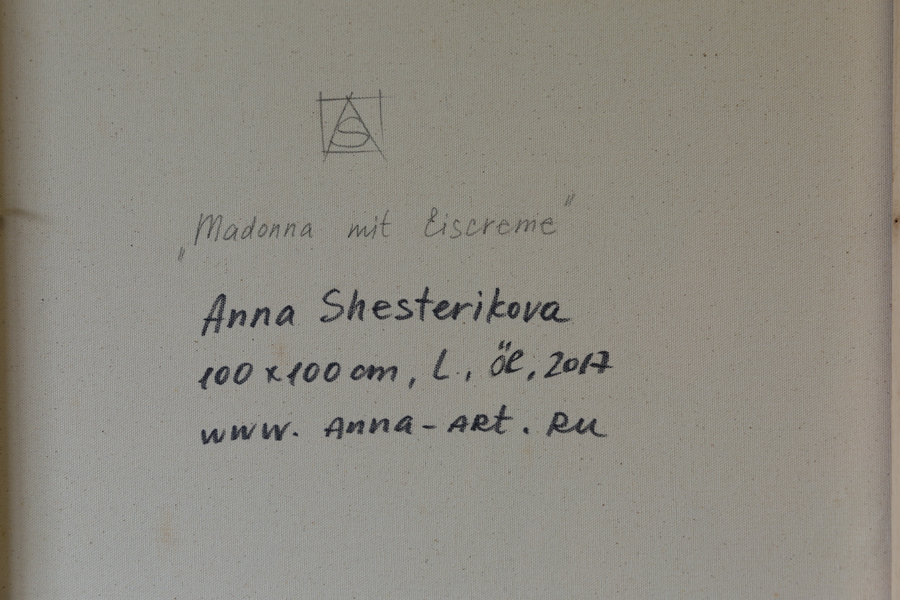 AS
„Madonna mit Eiscreme"
Anna Shesterikova
100 x 100 cm, L., Öl, 2017
www. Anna-ARt. Ru